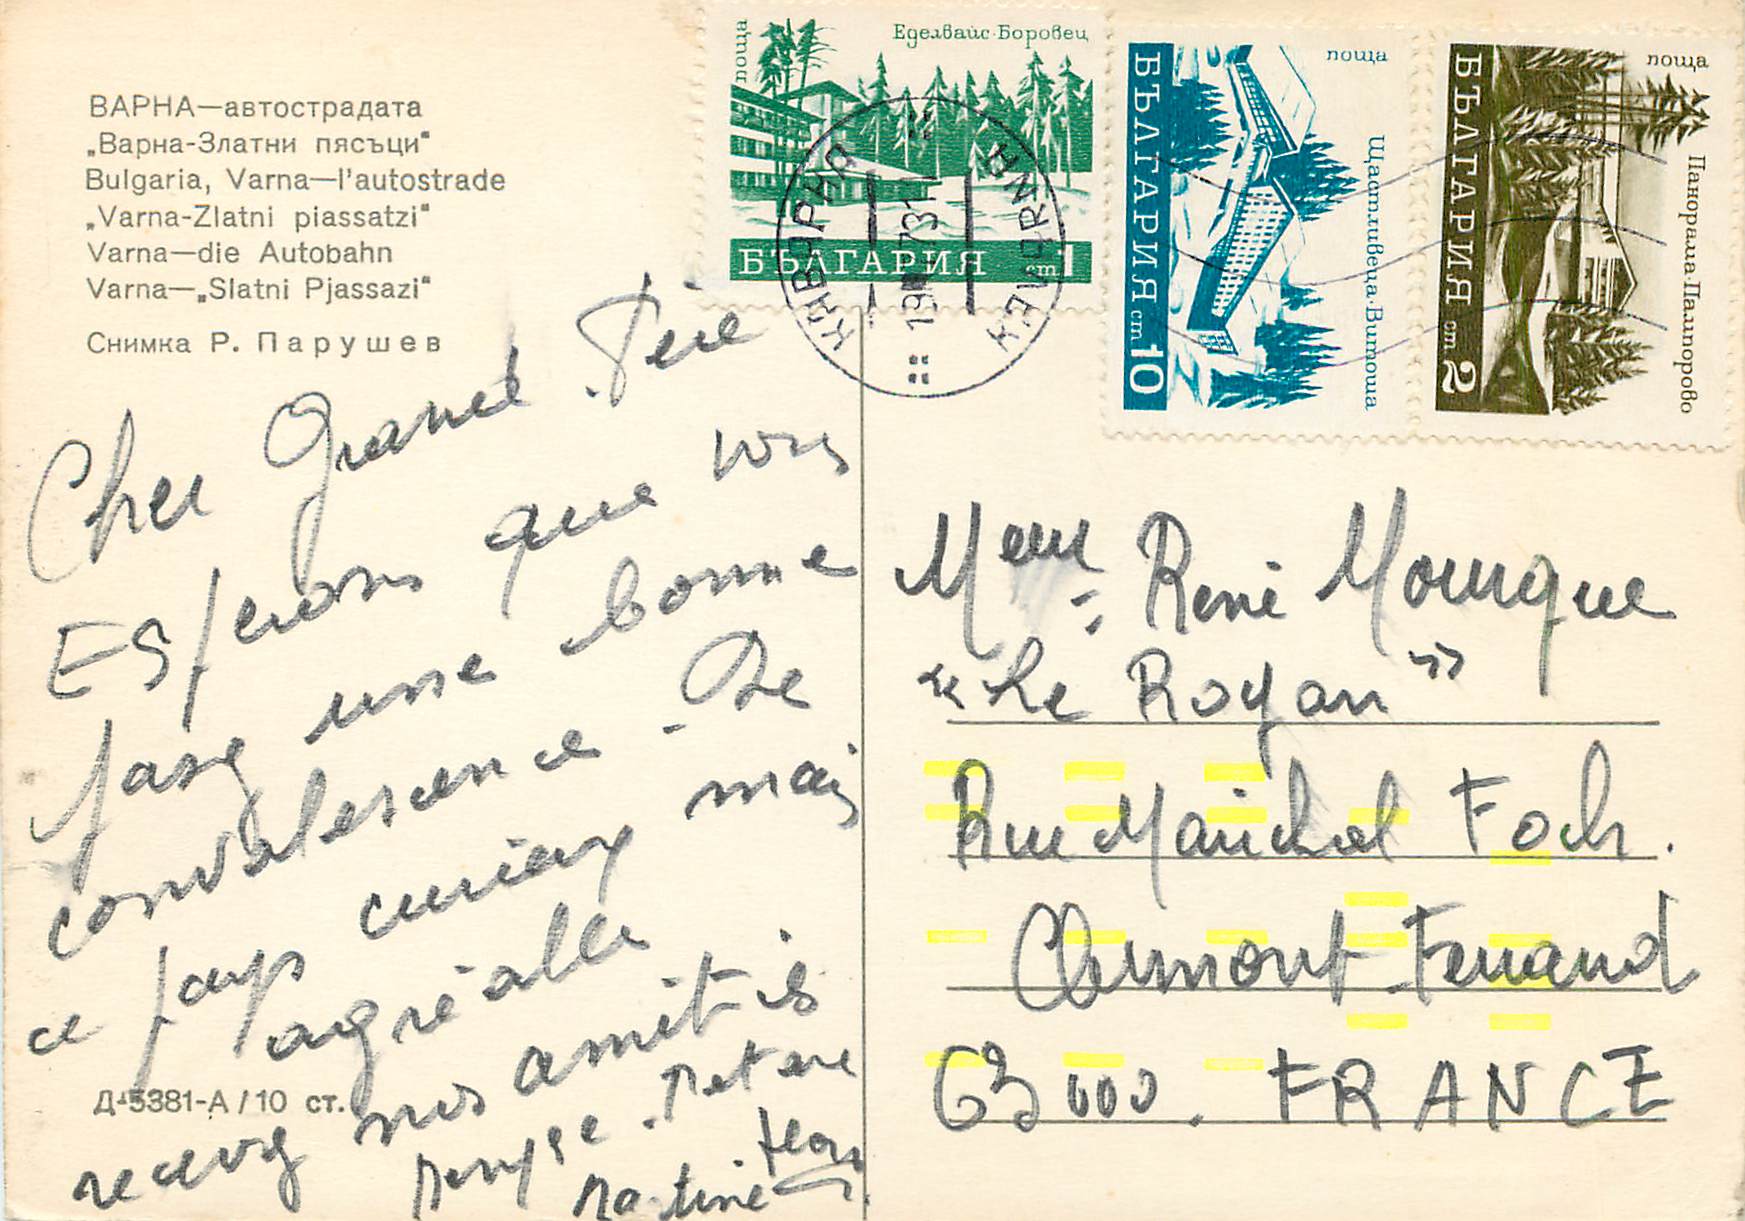 ВАРНА—автострадата
„Варна-Златни пясъци"
Bulgaria, Varna—l'autostrade
„Varna-Zlatni piassatzi"
Varna—die Autobahn
Varna—„Slatni Pjassazi"
Снимка Р. Парушев
Cher Grand Père
Esperons que vous
une bonne
convalescence. De
ce pays curieux mais
agréable
recevez nos amitiés
Martine
Д-5381-А / 10 ст.
поща
Еделвайс·Боровец
БЪЛГАРИЯ ст 1
КАВАРНА
KAVARNA
поща
Щастливеца·Витоша
БЪЛГАРИЯ ст 10
поща
Панорама·Пампорово
БЪЛГАРИЯ ст 2
Meur René Mourgue
"Le Royan"
Rue Maréchal Foch.
Clermont-Ferrand
63000. FRANCE